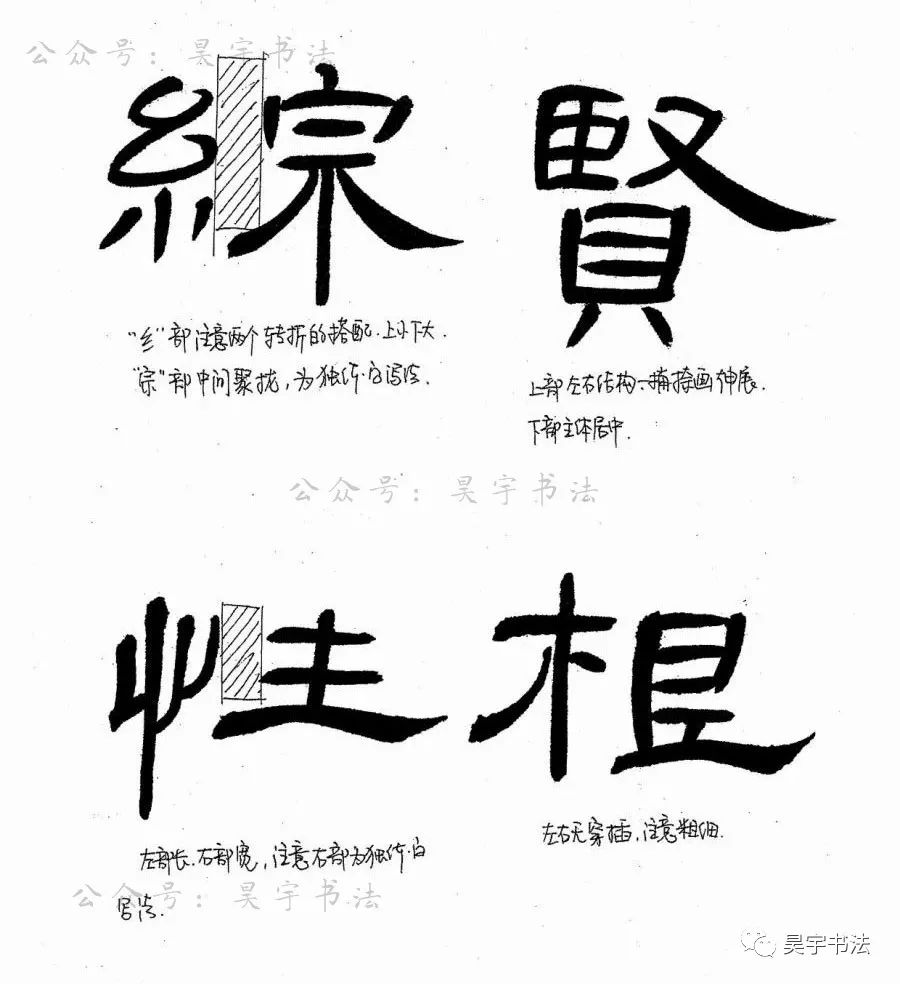 公众号：昊宇书法
綜 賢
“纟”部注意两个转折的搭配.上小下大.
“宗”部中间聚拢，为独体字写法.
上部左右结构 捺画伸展.
下部主体居中.
公众号：昊宇书法
性 根
左部长.右部宽，注意右部为独体字
写法.
左右无穿插，注意粗细.
公众号：昊宇书法
昊宇书法